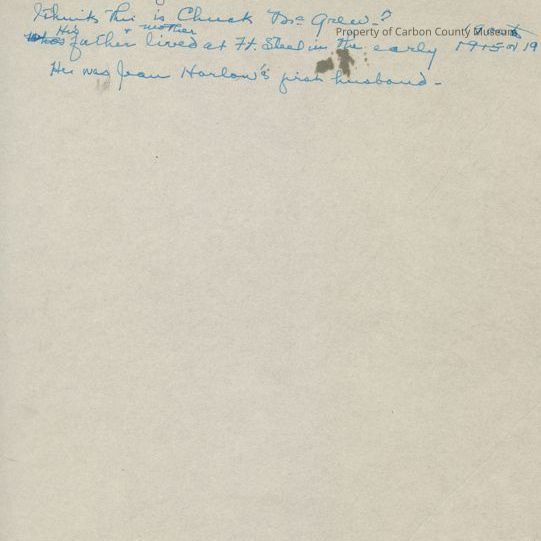 I think this is Chuck McGrew-?
His + mother
father lived at Ft. Steel in the early 1915 or 19
He was Jean Harlow's first husband-
Property of Carbon County Museum